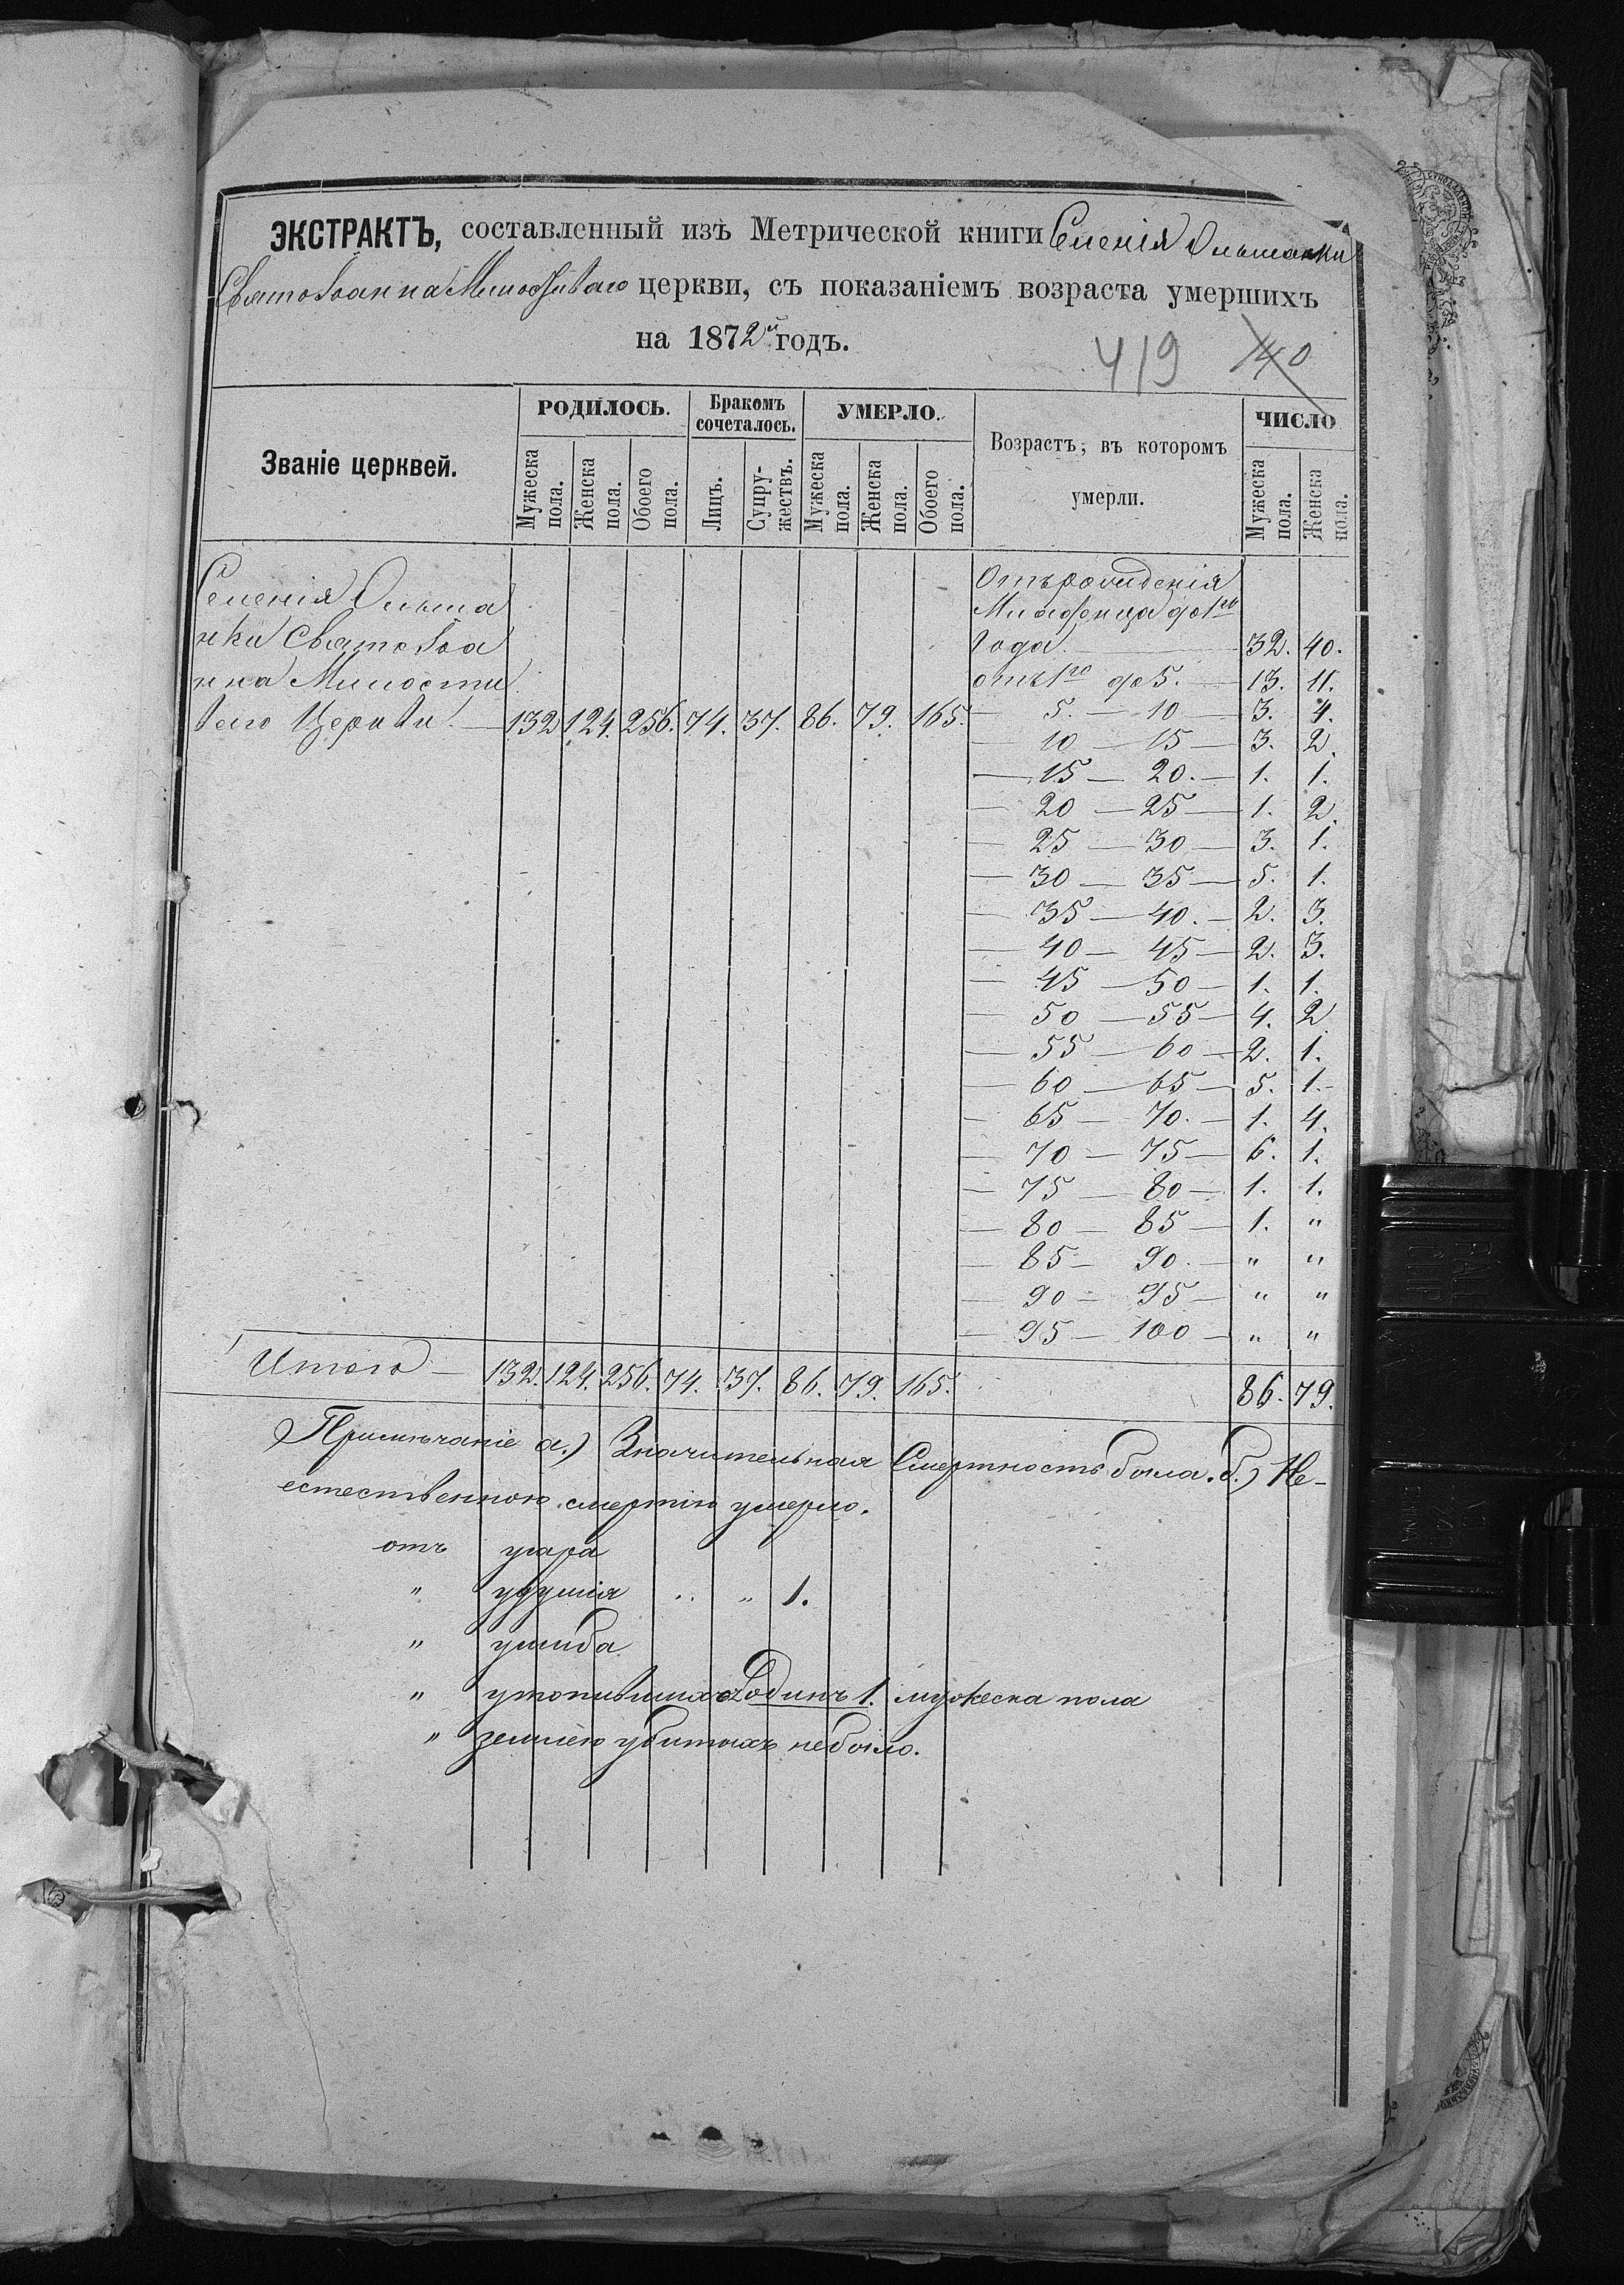 ЭКСТРАКТЪ, составленный изъ Метрической книги Селенія Ольшанки
Свято Іоанна Милостиваго церкви, съ показаніемъ возраста умершихъ
на 1872й годъ.
419 40
Званіе церквей. РОДИЛОСЬ. Бракомъ сочеталось. УМЕРЛО. Возрастъ, въ которомъ умерли. ЧИСЛО
Мужеска пола. Женска пола. Обоего пола. Лицъ. Супружествъ. Мужеска пола. Женска пола. Обоего пола. Мужеска пола. Женска пола.
Селенія Ольша
нки Свято Іоа
нна Милости
ваго Церкви. — 132 124. 256. 74. 37. 86. 79. 165.
Отъ рожденія
Младенца до 1го
Года. — 32. 40.
отъ 1го до 5. — 13. 11.
— 5. — 10 — 3. 4.
— 10 — 15 — 3. 2.
— 15 — 20. — 1. 1.
— 20 — 25 — 1. 2.
— 25 — 30 — 3. 1.
— 30 — 35 — 5. 1.
— 35 — 40. — 2. 3.
— 40 — 45 — 2. 3.
— 45 — 50 — 1. 1.
— 50 — 55 — 4. 2
— 55 — 60 — 2. 1.
— 60 — 65 — 5. 1.
— 65 — 70. — 1. 4.
— 70 — 75 — 6. 1.
— 75 — 80 — 1. 1.
— 80 — 85 — 1. "
— 85 — 90. — " "
— 90 — 95 — " "
— 95 — 100 — " "
Итого — 132. 124. 256. 74. 37. 86. 79. 165. 86. 79.
Примѣчаніе а.) Значительная Смертность была. б.) Не-
естественною смертію умерло.
отъ угара
" удушія " " 1.
" ушиба
" утопившихся одинъ 1. мужеска пола
" землею убитыхъ небыло.